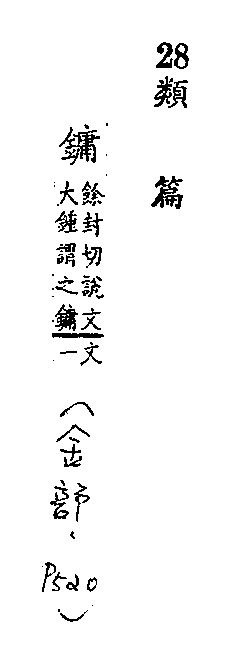 28
類篇
鏞
餘封切說文
大鍾謂之鏞文一
(金部、
P520)